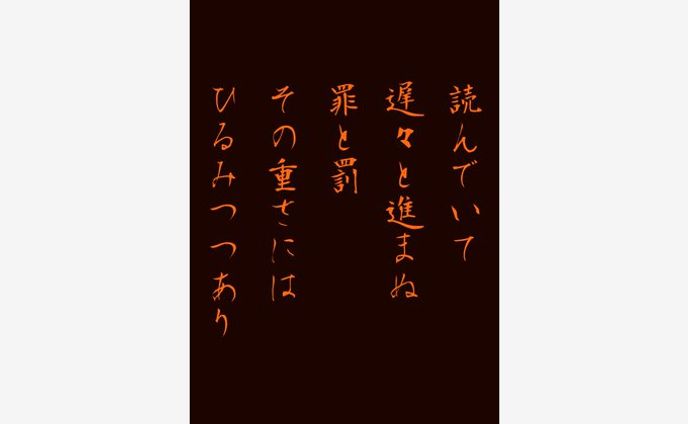 読んでいて
遅々と進まぬ
罪と罰
その重さには
ひるみつつあり